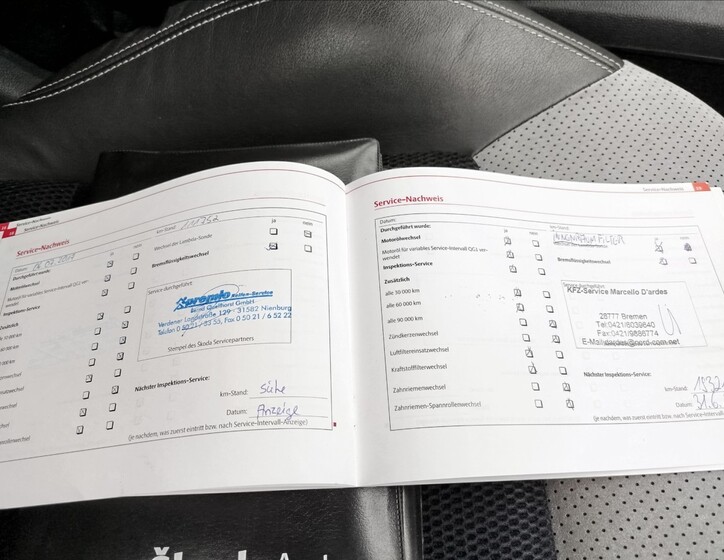 Service-Nachweis
Service-Nachweis
km-Stand:
Datum:
Durchgeführt wurde:
ja
nein
Motorölwechsel
Motoröl für variables Service-Intervall QG1 ver-
wendet
Inspektions-Service
Zusätzlich
Wechsel der Lambda-Sonde
Bremsflüssigkeitswechsel
Service durchgeführt:
premio Reifen-Service
Bernd Quellhorst GmbH
Verdener Landstraße 129 - 31582 Nienburg
Telefon 0 50 21 / 33 55, Fax 0 50 21 / 6 52 22
Stempel des Škoda Servicepartners
Nächster Inspektions-Service:
km-Stand: Siehe
Datum: Anzeige
(je nachdem, was zuerst eintritt bzw. nach Service-Intervall-Anzeige)
Service-Nachweis
Service-Nachweis
Datum:
Durchgeführt wurde:
ja
nein
km-Stand:
Motorölwechsel
Motoröl für variables Service-Intervall QG1 ver-
wendet
Inspektions-Service
Zusätzlich
alle 30 000 km
alle 60 000 km
alle 90 000 km
Zündkerzenwechsel
Luftfiltereinsatzwechsel
Kraftstofffilterwechsel
Zahnriemenwechsel
Zahnriemen-Spannrollenwechsel
Bremsflüssigkeitswechsel
KFZ-Service Marcello D'ardes
28777 Bremen
Tel:0421/8039640
Fax:0421/9886774
E-Mail:dardes@nord-com.net
Nächster Inspektions-Service:
km-Stand:
Datum:
(je nachdem, was zuerst eintritt bzw. nach Service-Intervall-